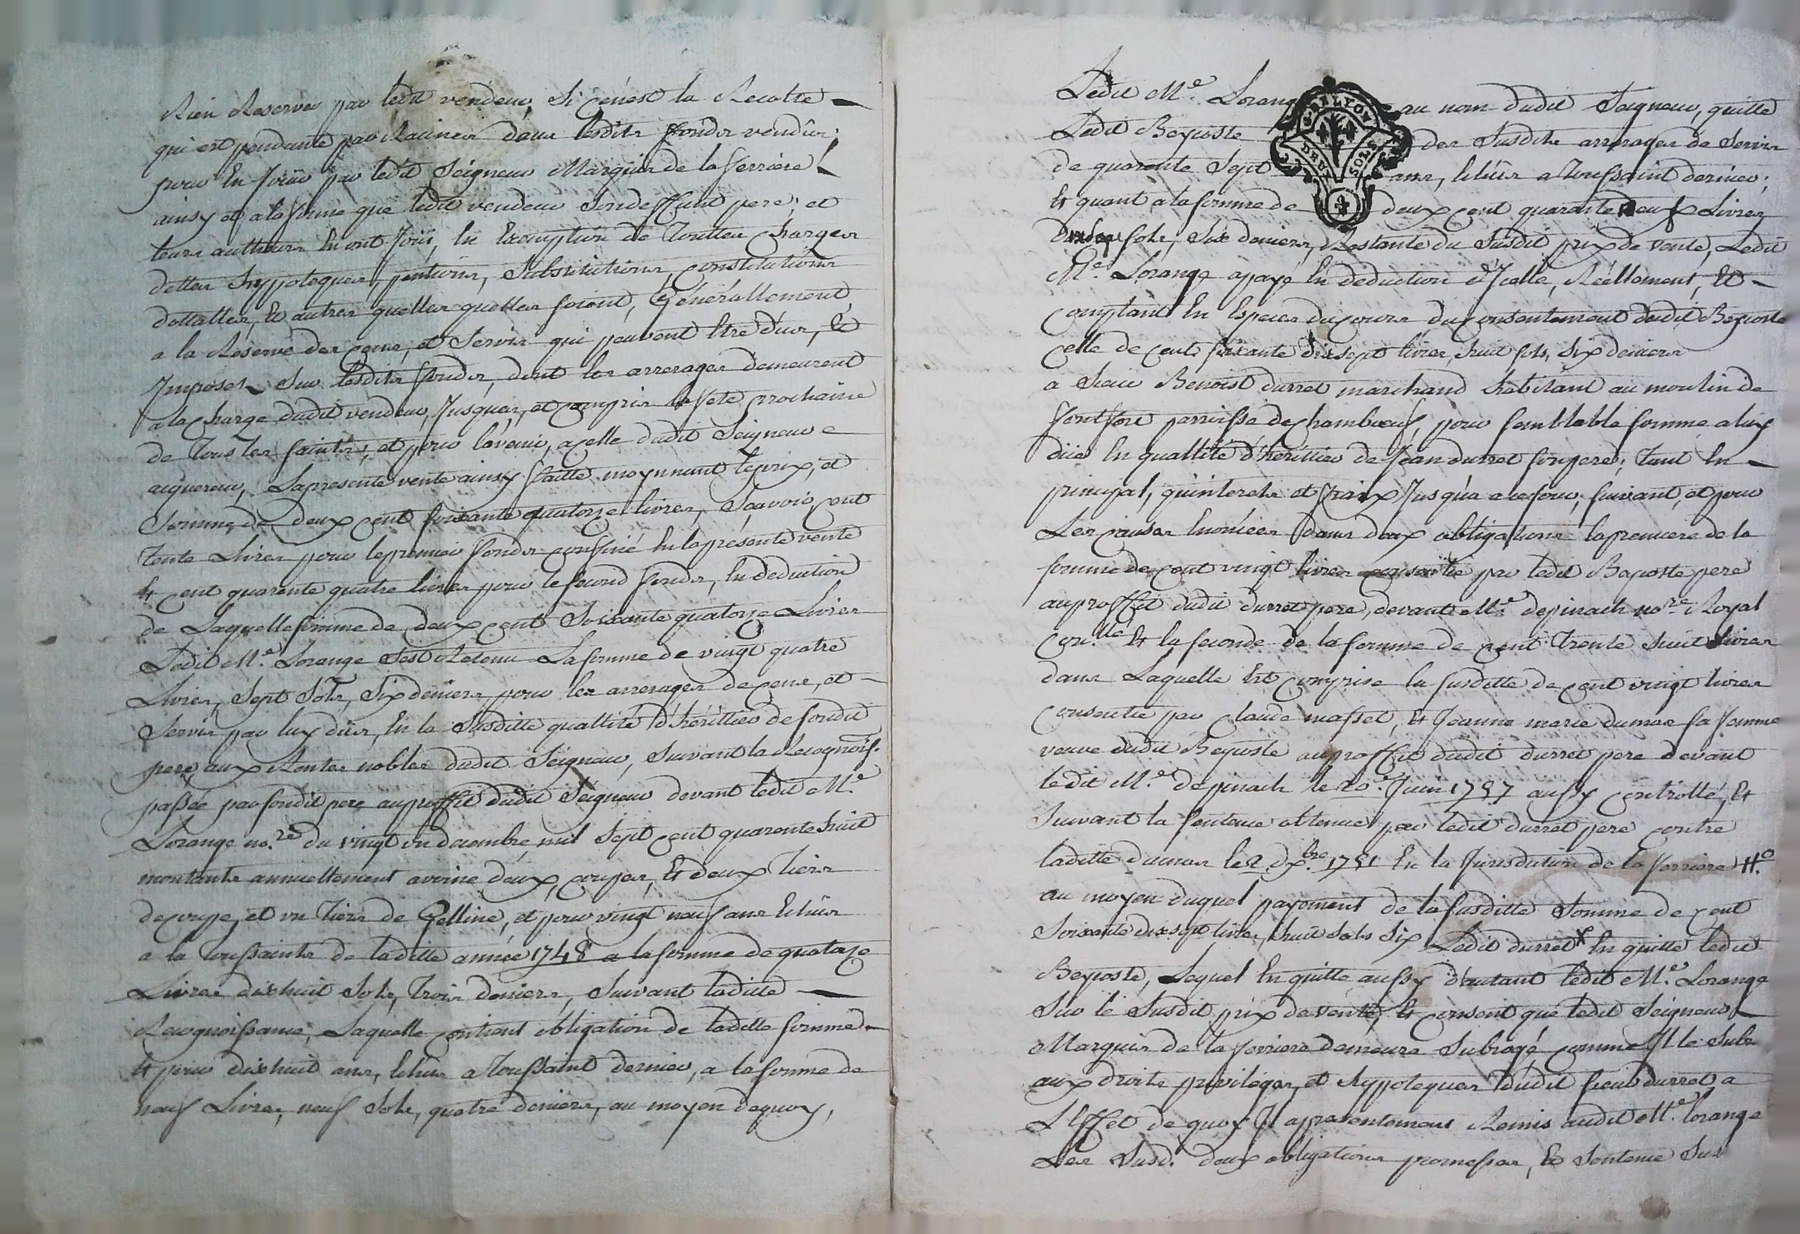 Rien Reservé par ledit vendeur, Si cenest la Recolte
qui est pendante par Racines dans lesdits fonds vendus;
pour En Jouir par ledit Seigneur Marquis de la ferriere
ainsy et a la forme que ledit vendeur Sondeffunt pere, et
leurs autheurs En ont Joüi, En Exemption de Toutes Charges
dettes hypoteques, pentions, Substitutions, constitutions
dottalles, Et autres quelles quelles soient, Generallement,
a la Reserve des cens, et Servis qui peuvent Etre dus, Et
Imposés Sur lesdits fonds, dont les arrerages demeurent
a la charge dudit vendeur, Jusques, et compris la fete prochaine
de Tous les Saints, et pour lavenir, a celle dudit Seigneur
acquereur, La presente vente ainsy faitte moyennant le prix, et
Somme de deux cent soixante quatorze livres, Scavoir cent
trente Livres pour le premier fonds confiné En la presente vente
Et cent quarente quatre livres pour le second fonds, En deduction
de Laquelle somme de deux cent Soixante quatorze Livres
Ledit Me. Lorange Sest Retenu La somme de vingt quatre
Livres, Sept Sols, Six deniers pour les arrerages de cens, et
Servis par luy dus, En la Susditte quallité d'hérittier de sondit
pere, aux Rentes nobles dudit Seigneur, Suivant la Recognoiss.
passée par sondit pere au proffit dudit Seigneur devant ledit Me.
Lorange no.re du vingt un decembre mil Sept cent quarente huit
montants annuellement avoine deux coupes, Et deux Tiers
de coupe, et un Tiers de Gelline, et pour vingt neuf ans Echus
a la Toussaints de laditte année 1748 a la somme de quatorze
Livres dixhuit Sols, Trois deniers, Suivant laditte
Recognoissance, Laquelle contient obligation de laditte somme
Et pour dixhuit ans, Echus a Toussaint dernier, a la somme de
neuf Livres, neuf Sols, quatre deniers, au moyen dequoy,
Ledit Me. Lorange au nom dudit Seigneur, quitte
Ledit Beposte des Susdits arrerages de Servis
de quarente Sept ans, Echus a Toussaint dernier;
Et quant a la somme de deux cent quarente neuf Livres
sols, Six deniers, Restante du Susdit prix de vente, Ledit
Me. Lorange a payé En deduction d'Icelle, Réellement, Et
comptant En Especes du cours du consentement dudit Beposte
celle de cent soixante dixsept livres, huit sols, Six deniers
a Sieur Benoist durret marchand habitant au moulin de
fontfort parroisse de chambœuf pour semblable somme a luy
düe En quallité d'hérittier de Jean durret son pere, Tant En
principal, qu'interets et fraix Jusqu'a ce jour, suivant, et pour
Les causes Enoncées dans deux obligations la premiere de la
somme de cent vingt livres consentie par ledit Beposte pere
au proffit dudit durret pere, devant Me. depinach no.re Royal
con.llé Et la seconde de la somme de cent Trente huit livres
dans Laquelle Est comprise la susditte de cent vingt livres
consentie par claude masset, Et Jeanne marie dumas sa femme
veuve dudit Beposte au proffit dudit durret pere devant
ledit Me. depinach le 20e. Juin 1757 aussy controllé, Et
Suivant la sentence obtenue par ledit durret pere contre
laditte dumas le 2. Xbre. 1751 En la Jurisdiction de la ferriere
au moyen duquel payement de la susditte Somme de cent
Soixante dixsept livres, huit sols Six Ledit durret En quitte ledit
Beposte, Lequel En quitte aussy d'autant ledit Me. Lorange
Sur le Susdit prix de vente, Et consent que ledit Seigneur
Marquis de la ferriere demeure Subrogé comme Il le Subroge
aux droits privileges, et hypoteques dudit sieur durret, a
L'Effet de quoy Il a presentement Remis audit Me. Lorange
Les Susd. deux obligations promesses, Et Sentence Sus
GN DE LYON
DEUX SOLS